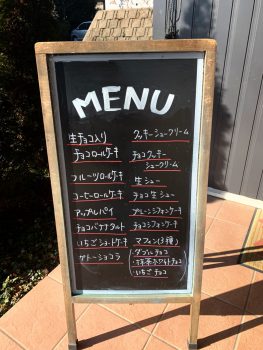 MENU
生チョコ入り
チョコロールケーキ
フルーツロールケーキ
コーヒーロールケーキ
アップルパイ
チョコバナナタルト
いちごショートケーキ
ガトーショコラ
クッキーシュークリーム
チョコクッキー
シュークリーム
生シュー
チョコ生シュー
プレーンシフォンケーキ
チョコシフォンケーキ
マフィン(3種)
・ダブルチョコ
・抹茶ホワイトチョコ
・いちごチョコ